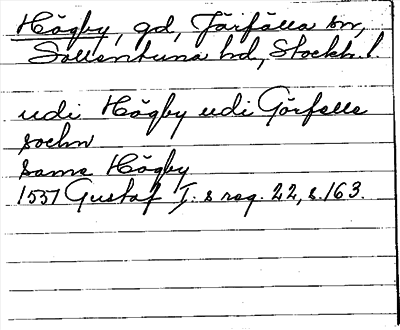 Högby, gd, Järfälla sn,
Sollentuna hd, Stockh. l.
udi Högby udi Görfelle
sochn
same Högby
1557 Gustaf I:s reg. 22, s. 163.